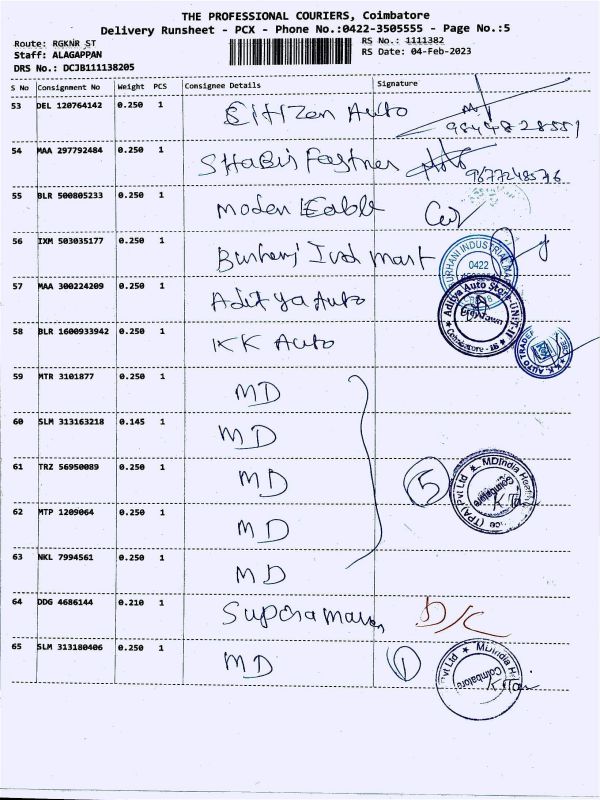 THE PROFESSIONAL COURIERS, Coimbatore
Delivery Runsheet - PCX - Phone No.:0422-3505555 - Page No.:5
Route: RGKNR ST RS No.: 1111382
Staff: ALAGAPPAN RS Date: 04-Feb-2023
DRS No.: DCJB111138205
S No Consignment No Weight PCS Consignee Details Signature
53 DEL 120764142 0.250 1 Citizen Auto
54 MAA 297792484 0.250 1 Shabis Fastner 9677248576
55 BLR 500805233 0.250 1 Moden Cable
56 IXM 503035177 0.250 1 Burhani Ind Mart BURHANI INDUSTRIAL 0422
57 MAA 300224209 0.250 1 Aditya Auto Aditya Auto Store - UNIT-II Coimbatore - 18
58 BLR 1600933942 0.250 1 KK Auto K.K. AUTO TRADER
59 MTR 3101877 0.250 1 MD
60 SLM 313163218 0.145 1 MD
61 TRZ 56950089 0.250 1 MD 5 MDIndia Health (TPA) Pvt Ltd Coimbatore
62 MTP 1209064 0.250 1 MD
63 NKL 7994561 0.250 1 MD
64 DDG 4686144 0.210 1 D/C
65 SLM 313180406 0.250 1 MD 1 Pvt Ltd MDIndia Coimbatore